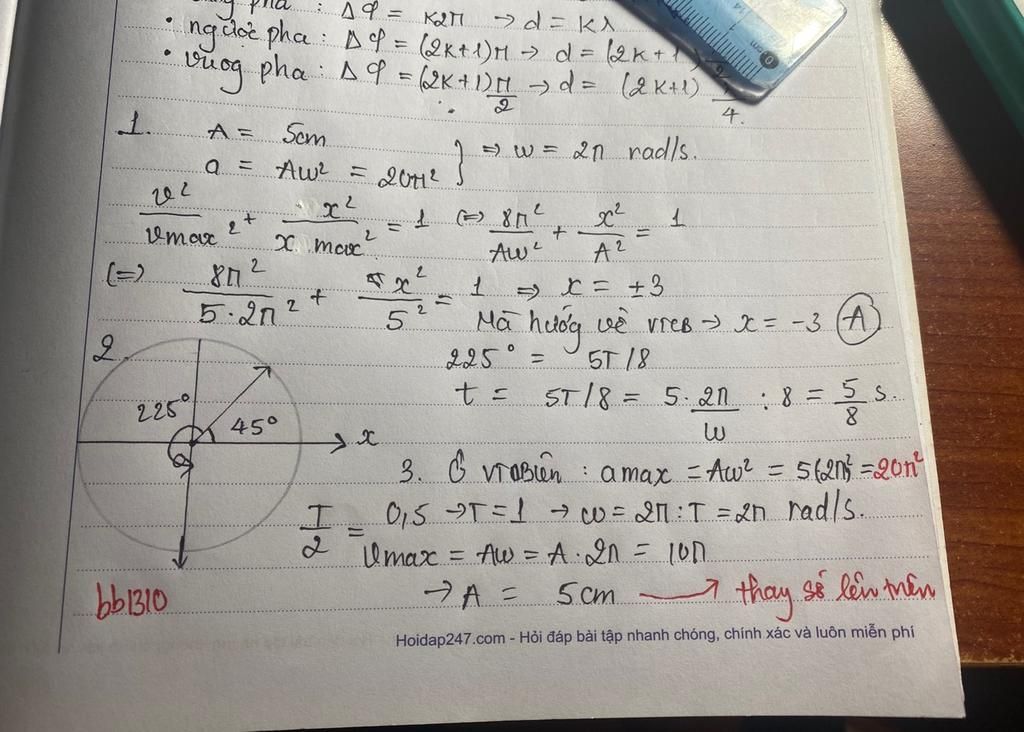 pha : Δφ = K2π → d = Kλ
• ngược pha : Δφ = (2K+1)π → d = (2K+1
• vuog pha : Δφ = (2K+1)π/2 → d = (2K+1) /4.
1. A = 5cm
a = Aw² = 20π² } ⇒ w = 2π rad/s.
v²/vmax² + x²/x max² = 1 (=) 8π²/Aw² + x²/A² = 1
(=) 8π²/5.2π² + x²/5² = 1 ⇒ x = ±3
Mà hướg về vtcb → x = -3 (A)
2. 225° = 5T/8
t = 5T/8 = 5.2π/w : 8 = 5/8 s.
225°
45°
x
3. Ở vtabiên : amax = Aw² = 5(2π)² = 20π²
T/2 = 0,5 → T = 1 → w = 2π : T = 2π rad/s.
vmax = Aw = A.2π = 10π
→ A = 5cm → thay số lên trên
bb1310
Hoidap247.com - Hỏi đáp bài tập nhanh chóng, chính xác và luôn miễn phí